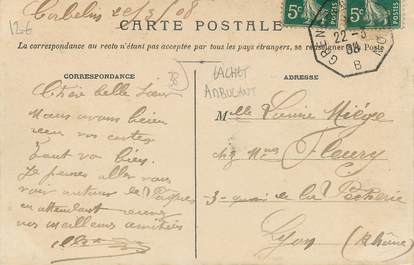 126
Corbelin 22/3/08
5c 5c
CARTE POSTALE
22-3
08
B
La correspondance au recto n'étant pas acceptée par tous les pays étrangers, se renseigner à la Poste
CORRESPONDANCE
ADRESSE
CACHET
AMBULANT
Chère belle Sœur
Nous avons bien
reçu vos cartes
Tout va bien.
Je pense aller vous
voir autour de Pâques
en attendant recevez
nos meilleures amitiés
Melle Louise Miège
chez Mme Fleury
3 - quai de la Pêcherie
Lyon (Rhône)